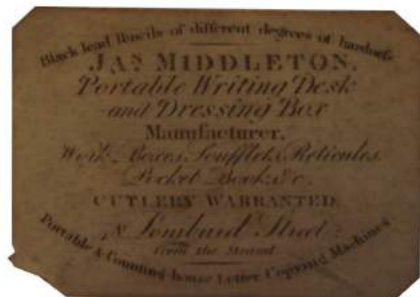 Black lead Pencils of different degrees of hardness
JAS. MIDDLETON,
Portable Writing Desk
and Dressing Box
Manufacturer,
Work Boxes, Soufflets, Reticules,
Pocket Books &c.
CUTLERY WARRANTED
Lombard Street
from the Strand
Portable & Counting-house Letter Copying Machines